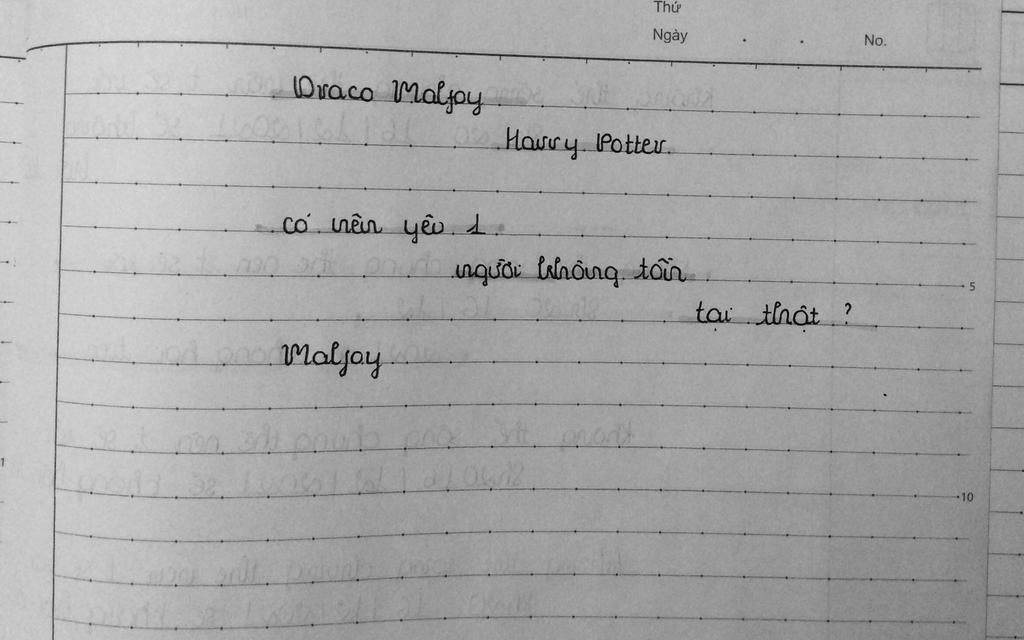 Thứ
Ngày . . No.
Draco Malfoy
Harry Potter.
có nên yêu 1
người không tồn
5
tại thật ?
Malfoy
10
1